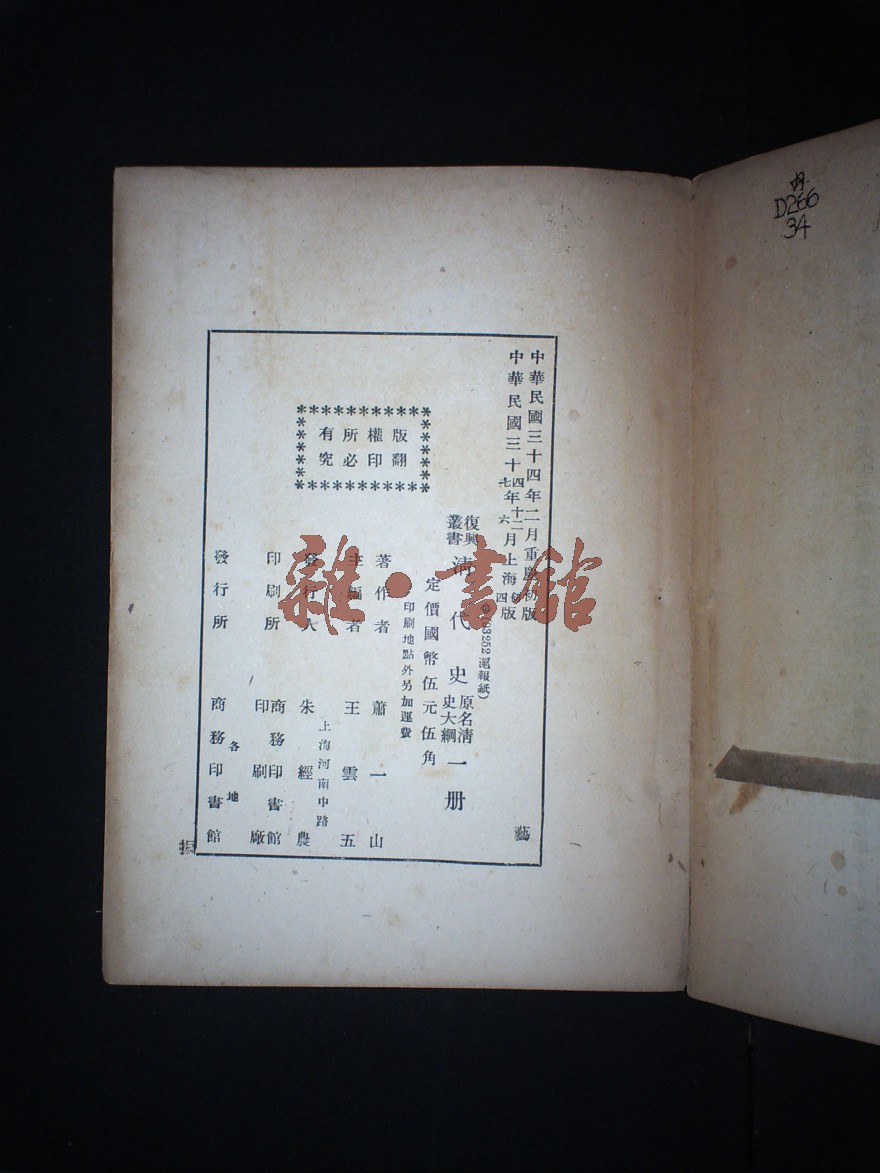 中華民國三十四年二月重慶初版
中華民國三十四年十二月上海初版
七 六 四
◎(63252滬報紙)
復興叢書 清代史 原名清史大綱 一册
定價國幣伍元伍角
印刷地點外另加運費
著作者 蕭一山
主編者 王雲五
發行人 朱經農
上海河南中路
印刷所 商務印書館印刷廠
發行所 商務印書館
各地
版權所有
翻印必究
藝
振
雜·書館
D266
34